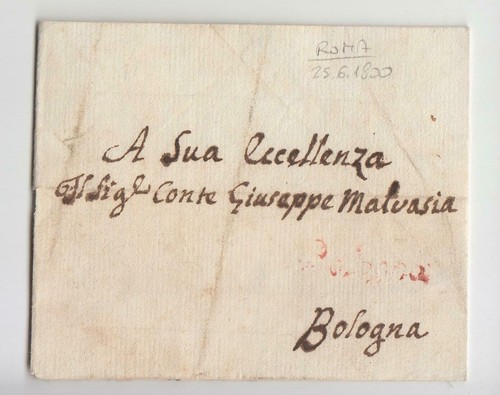 ROMA
25.6.1800
A Sua Eccellenza
Il Sig.r Conte Giuseppe Malvasia
Bologna